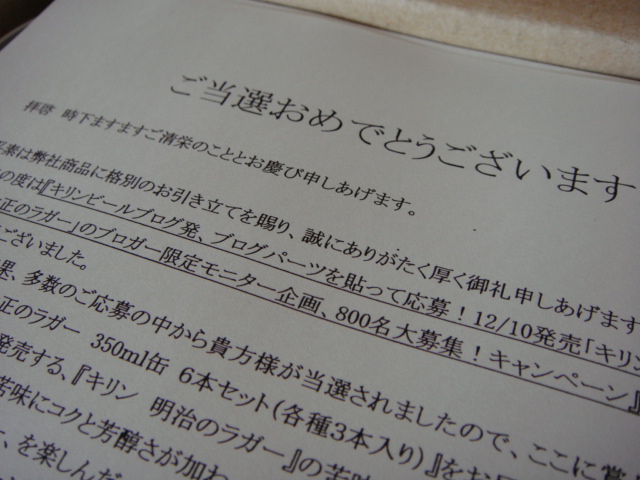 ご当選おめでとうございます
拝啓 時下ますますご清栄のこととお慶び申しあげます。
素は弊社商品に格別のお引き立てを賜り、誠にありがたく厚く御礼申しあげます
の度は『キリンビールブログ発、ブログパーツを貼って応募！12/10発売「キリン
正のラガー」のブロガー限定モニター企画、800名大募集！キャンペーン』
ございました。
果、多数のご応募の中から貴方様が当選されましたので、ここに賞
正のラガー 350ml缶 6本セット(各種3本入り)』をお
発売する、『キリン 明治のラガー』の苦味
苦味にコクと芳醇さが加わ
を楽しんだ